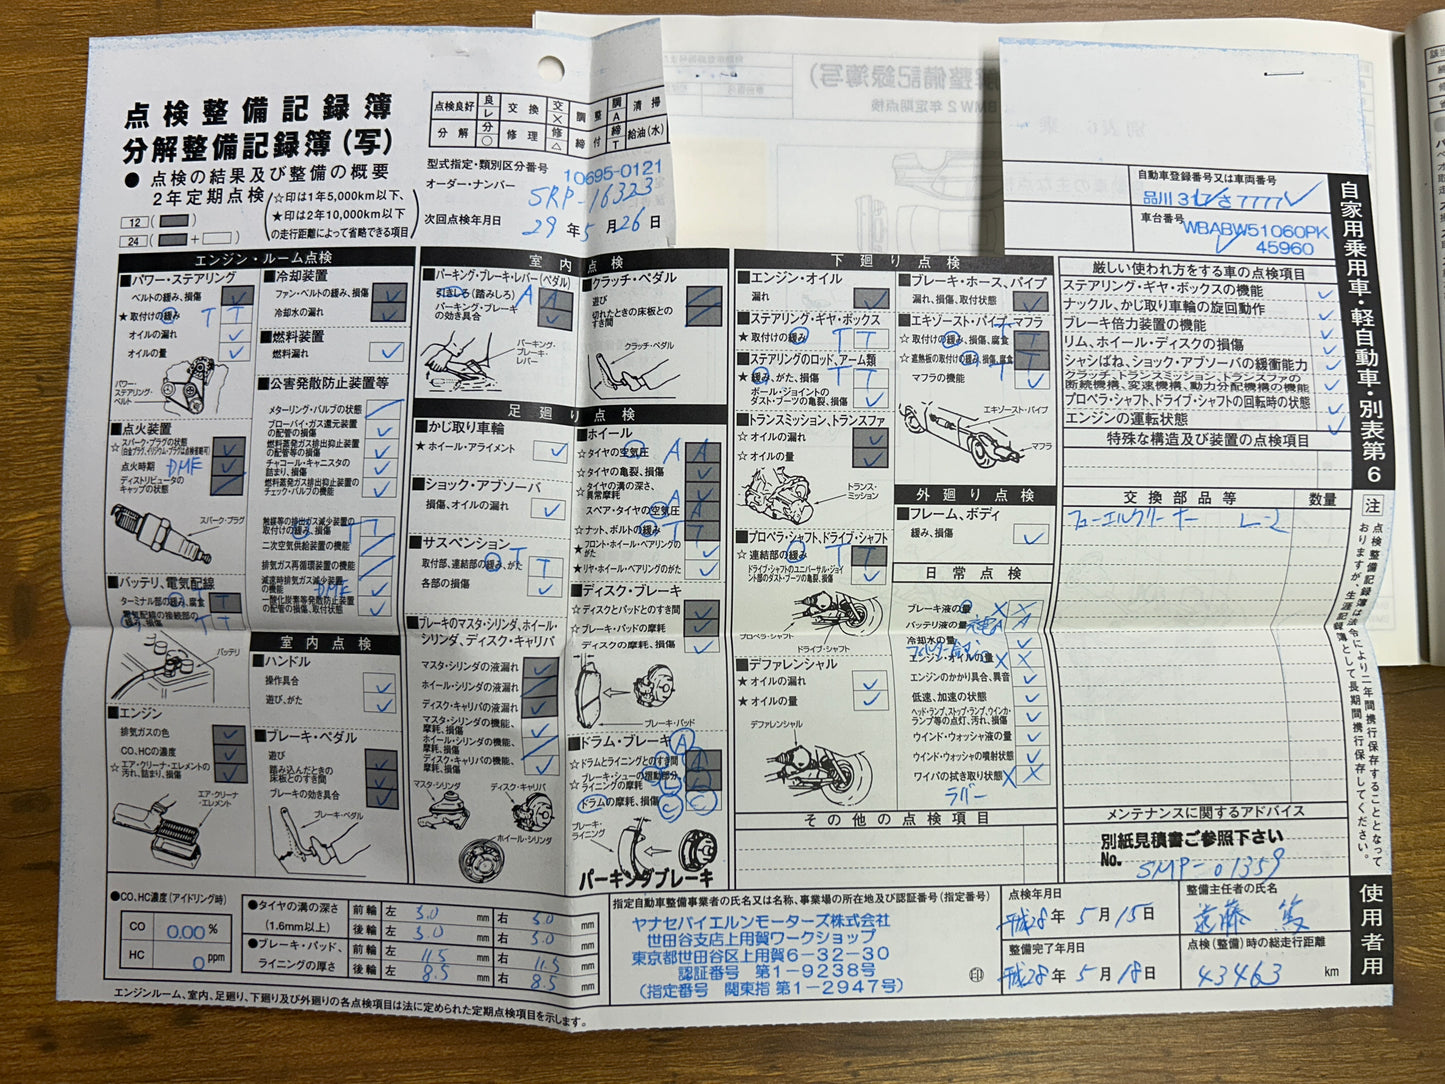 点検整備記録簿
分解整備記録簿(写)
● 点検の結果及び整備の概要
2年定期点検
☆印は1年5,000km以下、
★印は2年10,000km以下
の走行距離によって省略できる項目
12
24
点検良好 良 レ 交換 交 × 調整 調 A 清掃
分解 分 ○ 修理 修 △ 締付 締 T 給油(水)
型式指定・類別区分番号
10695-0121
オーダー・ナンバー
SRP-16323
次回点検年月日
29年5月26日
自動車登録番号又は車両番号
品川 317 さ 7777
車台番号
WBABW51060PK
45960
自家用乗用車・軽自動車・別表第6
エンジン・ルーム点検
■パワー・ステアリング
ベルトの緩み、損傷
★ 取付けの緩み T T
オイルの漏れ
オイルの量
パワー・
ステアリング・
ベルト
■点火装置
☆ スパーク・プラグの状態
(白金プラグ、イリジウム・プラグは点検省略可)
点火時期 DME
ディストリビュータの
キャップの状態
スパーク・プラグ
■バッテリ、電気配線
ターミナル部の緩み、腐食
電気配線の接続部の
バッテリ
■エンジン
排気ガスの色
CO、HCの濃度
☆ エア・クリーナ・エレメントの
汚れ、詰まり、損傷
エア・クリーナ
・エレメント
■冷却装置
ファン・ベルトの緩み、損傷
冷却水の漏れ
■燃料装置
燃料漏れ
■公害発散防止装置等
メターリング・バルブの状態
ブローバイ・ガス還元装置
の配管の損傷
燃料蒸発ガス排出抑止装置
の配管等の損傷
チャコール・キャニスタの
詰まり、損傷
燃料蒸発ガス排出抑止装置の
チェック・バルブの機能
触媒等の排出ガス減少装置の
取付けの緩み、損傷
二次空気供給装置の機能
排気ガス再循環装置の機能
減速時排気ガス減少装置
の機能 DME
一酸化炭素等発散防止装置
の配管の損傷、取付状態
室内点検
■ハンドル
操作具合
遊び、がた
■ブレーキ・ペダル
遊び
踏み込んだときの
床板とのすき間
ブレーキの効き具合
ブレーキ・ペダル
室内点検
■パーキング・ブレーキ・レバー(ペダル)
引きしろ(踏みしろ) A A
パーキング・ブレーキ
の効き具合
パーキング・
ブレーキ・
レバー
■クラッチ・ペダル
遊び
切れたときの床板との
すき間
クラッチ・ペダル
足廻り点検
■かじ取り車輪
★ ホイール・アライメント
■ショック・アブソーバ
損傷、オイルの漏れ
■サスペンション
取付部、連結部の緩み、がた T T
各部の損傷
■ブレーキのマスタ・シリンダ、ホイール・
シリンダ、ディスク・キャリパ
マスタ・シリンダの液漏れ
ホイール・シリンダの液漏れ
ディスク・キャリパの液漏れ
マスタ・シリンダの機能、
摩耗、損傷
ホイール・シリンダの機能、
摩耗、損傷
ディスク・キャリパの機能、
摩耗、損傷
マスタ・シリンダ
ディスク・キャリパ
ホイール・シリンダ
■ホイール
☆タイヤの空気圧 A A
☆タイヤの亀裂、損傷
☆タイヤの溝の深さ、
異常摩耗
スペア・タイヤの空気圧 A
☆ナット、ボルトの緩み T T
★フロント・ホイール・ベアリングの
がた
★リヤ・ホイール・ベアリングのがた
■ディスク・ブレーキ
☆ディスクとパッドとのすき間
☆ブレーキ・パッドの摩耗
ディスクの摩耗、損傷
ブレーキ・パッド
■ドラム・ブレーキ
☆ドラムとライニングとのすき間
☆ブレーキ・シューの摺動部分、
ライニングの摩耗
ドラムの摩耗、損傷
ブレーキ・
ライニング
パーキングブレーキ
下廻り点検
■エンジン・オイル
漏れ
■ステアリング・ギヤ・ボックス
★ 取付けの緩み T T
■ステアリングのロッド、アーム類
★ 緩み、がた、損傷 T T
ボール・ジョイントの
ダスト・ブーツの亀裂、損傷
■トランスミッション、トランスファ
☆ オイルの漏れ
☆ オイルの量
トランス・
ミッション
■プロペラ・シャフト、ドライブ・シャフト
☆ 連結部の緩み T T
ドライブ・シャフトのユニバーサル・ジョイ
ント部のダスト・ブーツの亀裂、損傷
プロペラ・シャフト
ドライブ・シャフト
■デファレンシャル
★ オイルの漏れ
★ オイルの量
デファレンシャル
■ブレーキ・ホース、パイプ
漏れ、損傷、取付状態
■エキゾースト・パイプ、マフラ
☆ 取付けの緩み、損傷、腐食
☆ 遮熱板の取付けの緩み、損傷、腐食
マフラの機能
エキゾースト・パイプ
マフラ
外廻り点検
■フレーム、ボディ
緩み、損傷
日常点検
ブレーキ液の量
バッテリ液の量
冷却水の量
エンジン・オイルの量
エンジンのかかり具合、異音
低速、加速の状態
ヘッド・ランプ、ストップ・ランプ、ウインカ・
ランプ等の点灯、汚れ、損傷
ウインド・ウォッシャ液の量
ウインド・ウォッシャの噴射状態
ワイパの拭き取り状態
ラバー
その他の点検項目
厳しい使われ方をする車の点検項目
ステアリング・ギヤ・ボックスの機能
ナックル、かじ取り車輪の旋回動作
ブレーキ倍力装置の機能
リム、ホイール・ディスクの損傷
シャシばね、ショック・アブソーバの緩衝能力
クラッチ、トランスミッション、トランスファの
断続機構、変速機構、動力分配機構の機能
プロペラ・シャフト、ドライブ・シャフトの回転時の状態
エンジンの運転状態
特殊な構造及び装置の点検項目
交換部品等 数量
フューエルクリーナー
メンテナンスに関するアドバイス
別紙見積書ご参照下さい
No. SMP-01359
注 点検整備記録簿は法令により二年間携行保存することとなって
おりますが、生涯記録簿として長期間携行保存してください。
使用者用
●CO、HC濃度(アイドリング時)
CO 0.00 %
HC 0 ppm
●タイヤの溝の深さ
(1.6mm以上)
前輪 左 3.0 mm 右 3.0 mm
後輪 左 3.0 mm 右 3.0 mm
●ブレーキ・パッド、
ライニングの厚さ
前輪 左 11.5 mm 右 11.5 mm
後輪 左 8.5 mm 右 8.5 mm
エンジンルーム、室内、足廻り、下廻り及び外廻りの各点検項目は法に定められた定期点検項目を示します。
指定自動車整備事業者の氏名又は名称、事業場の所在地及び認証番号(指定番号)
ヤナセバイエルンモーターズ株式会社
世田谷支店上用賀ワークショップ
東京都世田谷区上用賀6-32-30
認証番号 第1-9238号
(指定番号 関東指 第1-2947号)
印
点検年月日
平成28年5月15日
整備完了年月日
平成28年5月18日
整備主任者の氏名
遠藤 篤
点検(整備)時の総走行距離
43463 km